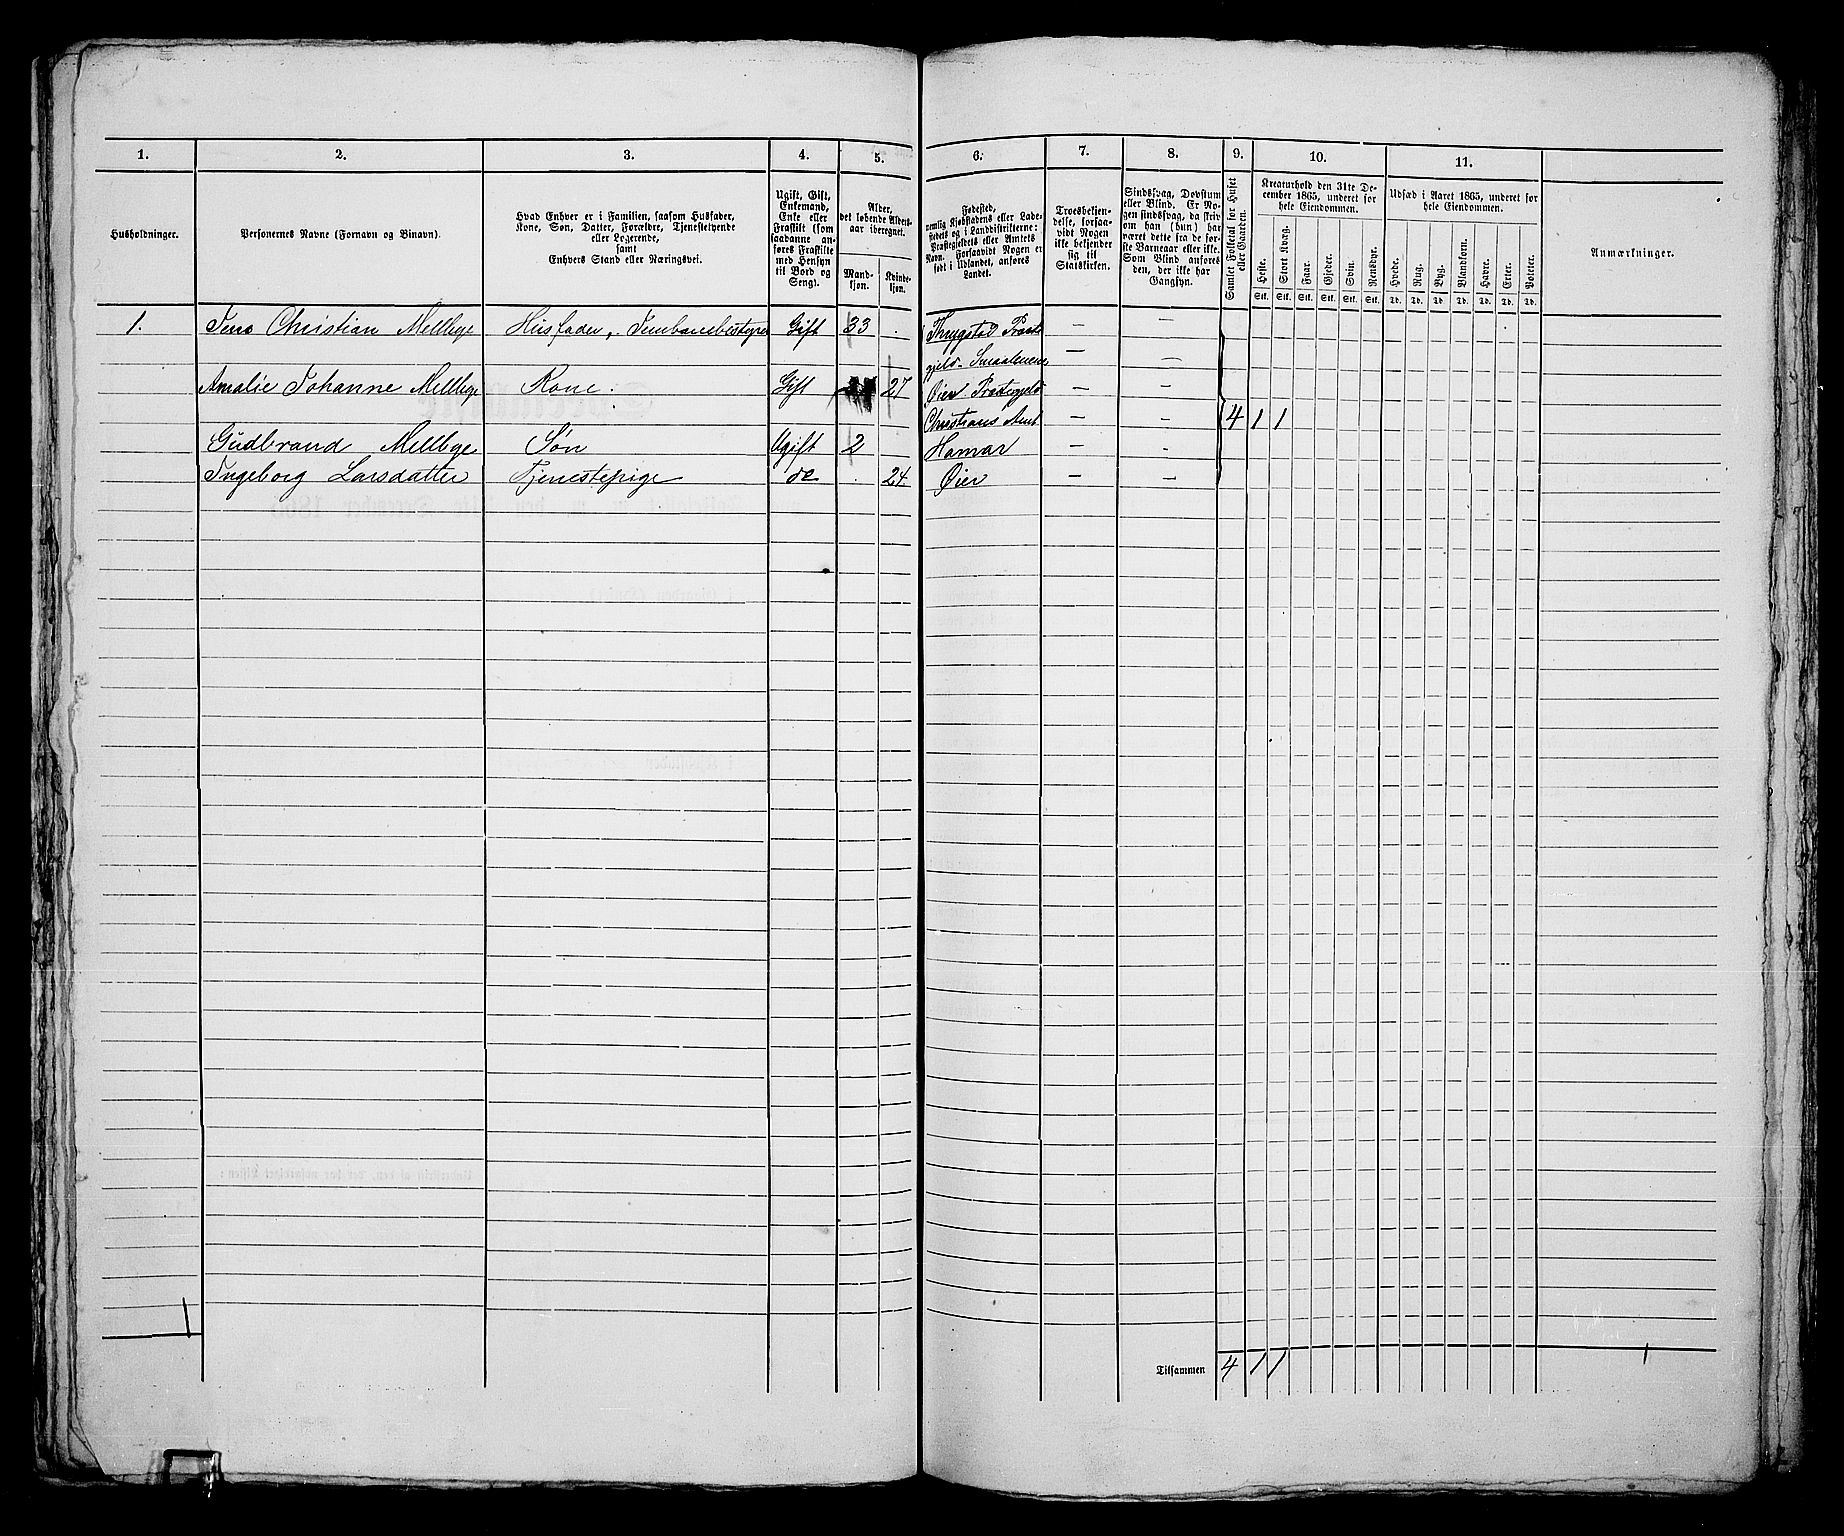 1. 2. 3. 4. 5. 6. 7. 8. 9. 10. 11.
Husholdninger.
Personernes Navne (Fornavn og Binavn).
Hvad Enhver er i Familien, saasom Husfader,
Kone, Søn, Datter, Forældre, Tjenestetyende
eller Logerende,
samt
Enhvers Stand eller Næringsvei.
Ugift, Gift,
Enkemand,
Enke eller
Fraskilt (som
saadanne an-
føres Fraskilte
med Hensyn
til Bord og
Seng).
Alder,
det løbende Alders-
aar iberegnet.
Mand-
kjøn.
Kvinde-
kjøn.
Fødested,
nemlig Kjøbstadens eller Lade-
stedets og i Landdistrikterne:
Præstegjeldets eller Amtets
Navn. Forsaavidt Nogen er
født i Udlandet, anføres
Landet.
Troesbekjen-
delse, forsaa-
vidt Nogen
ikke bekjender
sig til
Statskirken.
Sindssvag, Døvstum
eller Blind. Er No-
gen sindssvag, da skriv
om han (hun) har
været dette fra de før-
ste Barneaar eller ikke.
Som Blind anføres
den, der ikke har
Gangsyn.
Samlet Folketal for Huset
eller Gaarden.
Kreaturhold den 31te De-
cember 1865, underet for
hele Eiendommen.
Heste. Stort Kvæg. Faar. Gjeder. Svin. Rensdyr.
Stk. Stk. Stk. Stk. Stk. Stk.
Udsæd i Aaret 1865, underet for
hele Eiendommen.
Hvede. Rug. Byg. Blandkorn. Havre. Erter. Poteter.
Td. Td. Td. Td. Td. Td. Td.
Anmærkninger.
1. Jens Christian Mellbye Husfader, Jernbanebestyrer Gift 33 . Thrygstad Præste — —
gjeld. Smaalenene — —
Amalie Johanne Mellbye Kone. Gift 27 Øier Præstegjeld — —
Christians Amt — — 4 1 1
Gudbrand Mellbye Søn Ugift 2 Hamar — —
Ingeborg Larsdatter Tjenestepige do . 24. Øier — —
1
Tilsammen 4 1 1 1